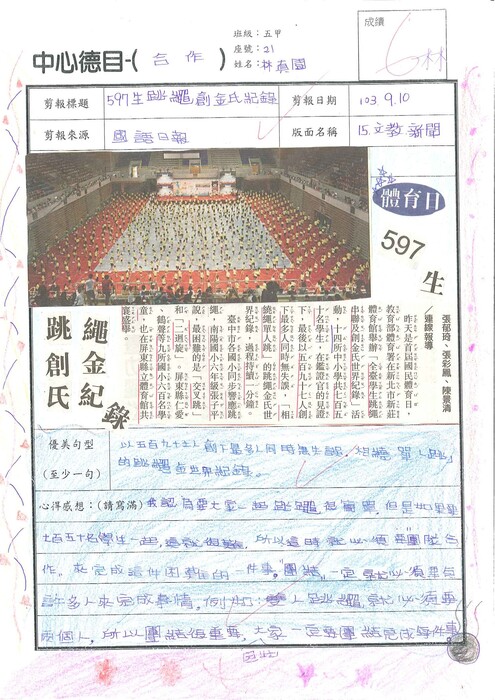 班級：五甲
座號：21
姓名：林真園
成績
中心德目-(合作)
剪報標題
597生跳繩創金氏紀錄
剪報日期
103.9.10
剪報來源
國語日報
版面名稱
15.文教新聞
體育日
597
生
跳繩創金氏紀錄
張郁玲、張彩鳳、陳景清
連線報導
昨天是首屆國民體育日，
教育部體育署在新北市新莊
體育館舉辦「全臺學生跳繩
串聯及創金氏世界紀錄」活
動，十四所中小學共七百五
十名學生，在鑑證官的見證
下，最後以五百九十七人創
下最多人同時無失誤，「相
繞繩單人跳」的跳繩金氏世
界紀錄，過程持續一分鐘。
臺中市各國小同步響應跳
繩，南陽國小六年級張子平
說，最困難的是「交叉跳」
和「二迴旋」。屏東縣仁愛
、鶴聲等九所國小六百名學
童，也在屏東縣立體育館共
襄盛舉。
優美句型
(至少一句)
以五百九十七人創下最多人同時無失誤，相繞單人跳」
的跳繩金世界紀錄。
心得感想：(請寫滿)
我認為要大家一起跳繩起簡單，但是如果要
七百五十名學生一起，這就很難，所以這時就必須要團隊合
作。來完成這件困難的一件事，團結，一定就必須要有
許多人來完成事情，例如：雙人跳繩，就必須要
兩個人，所以團結很重要，大家一定要團結完成每件事